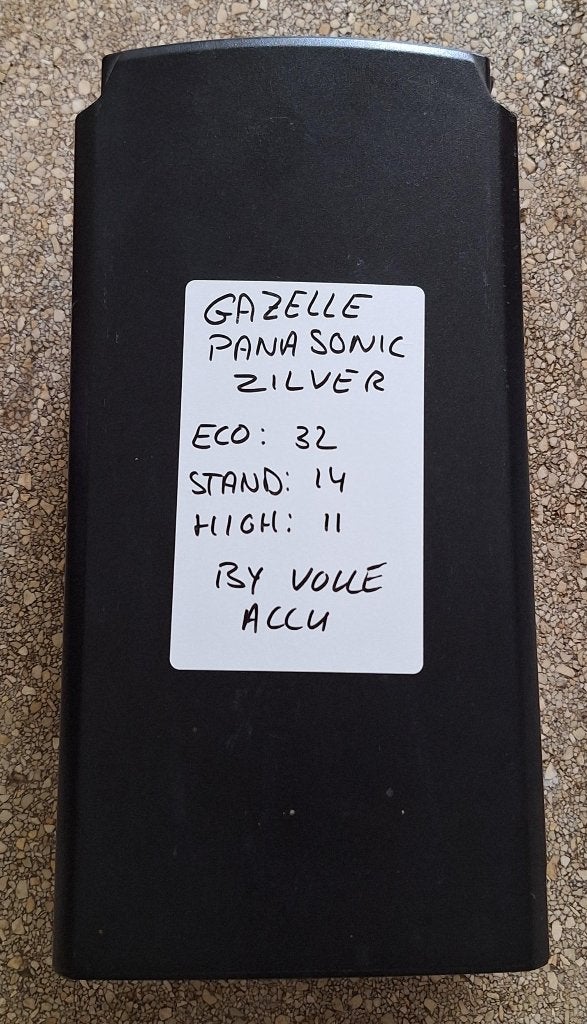 GAZELLE
PANASONIC
ZILVER
ECO: 32
STAND: 14
HIGH: 11
BY VOLLE
ACCU